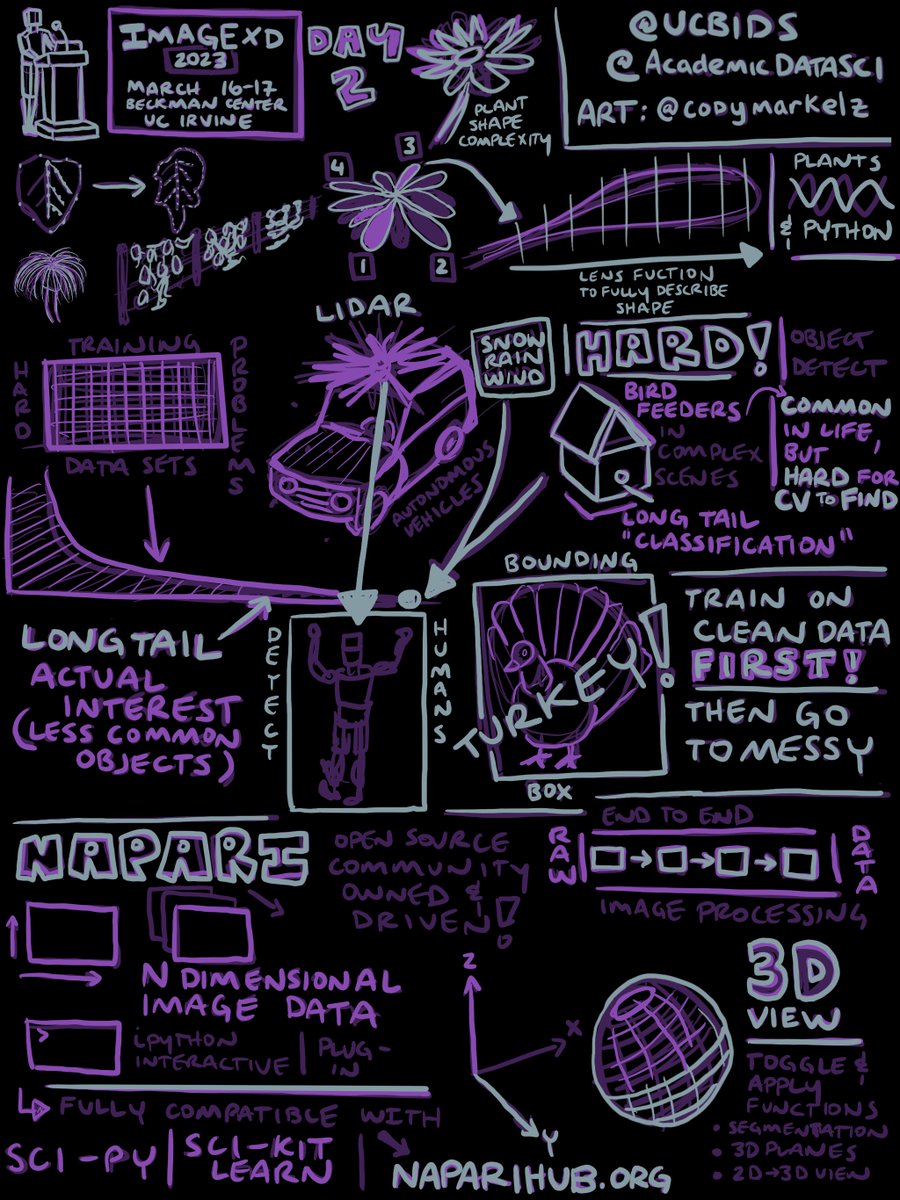 IMAGEXD
2023
MARCH 16-17
BECKMAN CENTER
UC IRVINE
DAY
2
@UCBIDS
@AcademicDATASCI
ART: @codymarkelz
PLANT
SHAPE
COMPLEXITY
4
3
1
2
LENS FUCTION
TO FULLY DESCRIBE
SHAPE
PLANTS
& PYTHON
TRAINING
HARD
PROBLEMS
DATA SETS
LIDAR
AUTONOMOUS
VEHICLES
SNOW
RAIN
WIND
HARD!
OBJECT
DETECT
BIRD
FEEDERS
IN
COMPLEX
SCENES
COMMON
IN LIFE,
BUT
HARD FOR
CV TO FIND
LONG TAIL
"CLASSIFICATION"
LONG TAIL
ACTUAL
INTEREST
(LESS COMMON
OBJECTS)
DETECT
HUMANS
BOUNDING
TURKEY!
BOX
TRAIN ON
CLEAN DATA
FIRST!
THEN GO
TO MESSY
NAPARI
OPEN SOURCE
COMMUNITY
OWNED &
DRIVEN!
END TO END
RAW
DATA
IMAGE PROCESSING
N DIMENSIONAL
IMAGE DATA
>
iPYTHON
INTERACTIVE
PLUG-
IN
Z
X
Y
3D
VIEW
TOGGLE &
APPLY
FUNCTIONS
• SEGMENTATION
• 3D PLANES
• 2D→3D VIEW
FULLY COMPATIBLE WITH
SCI-PY | SCI-KIT
LEARN
NAPARIHUB.ORG